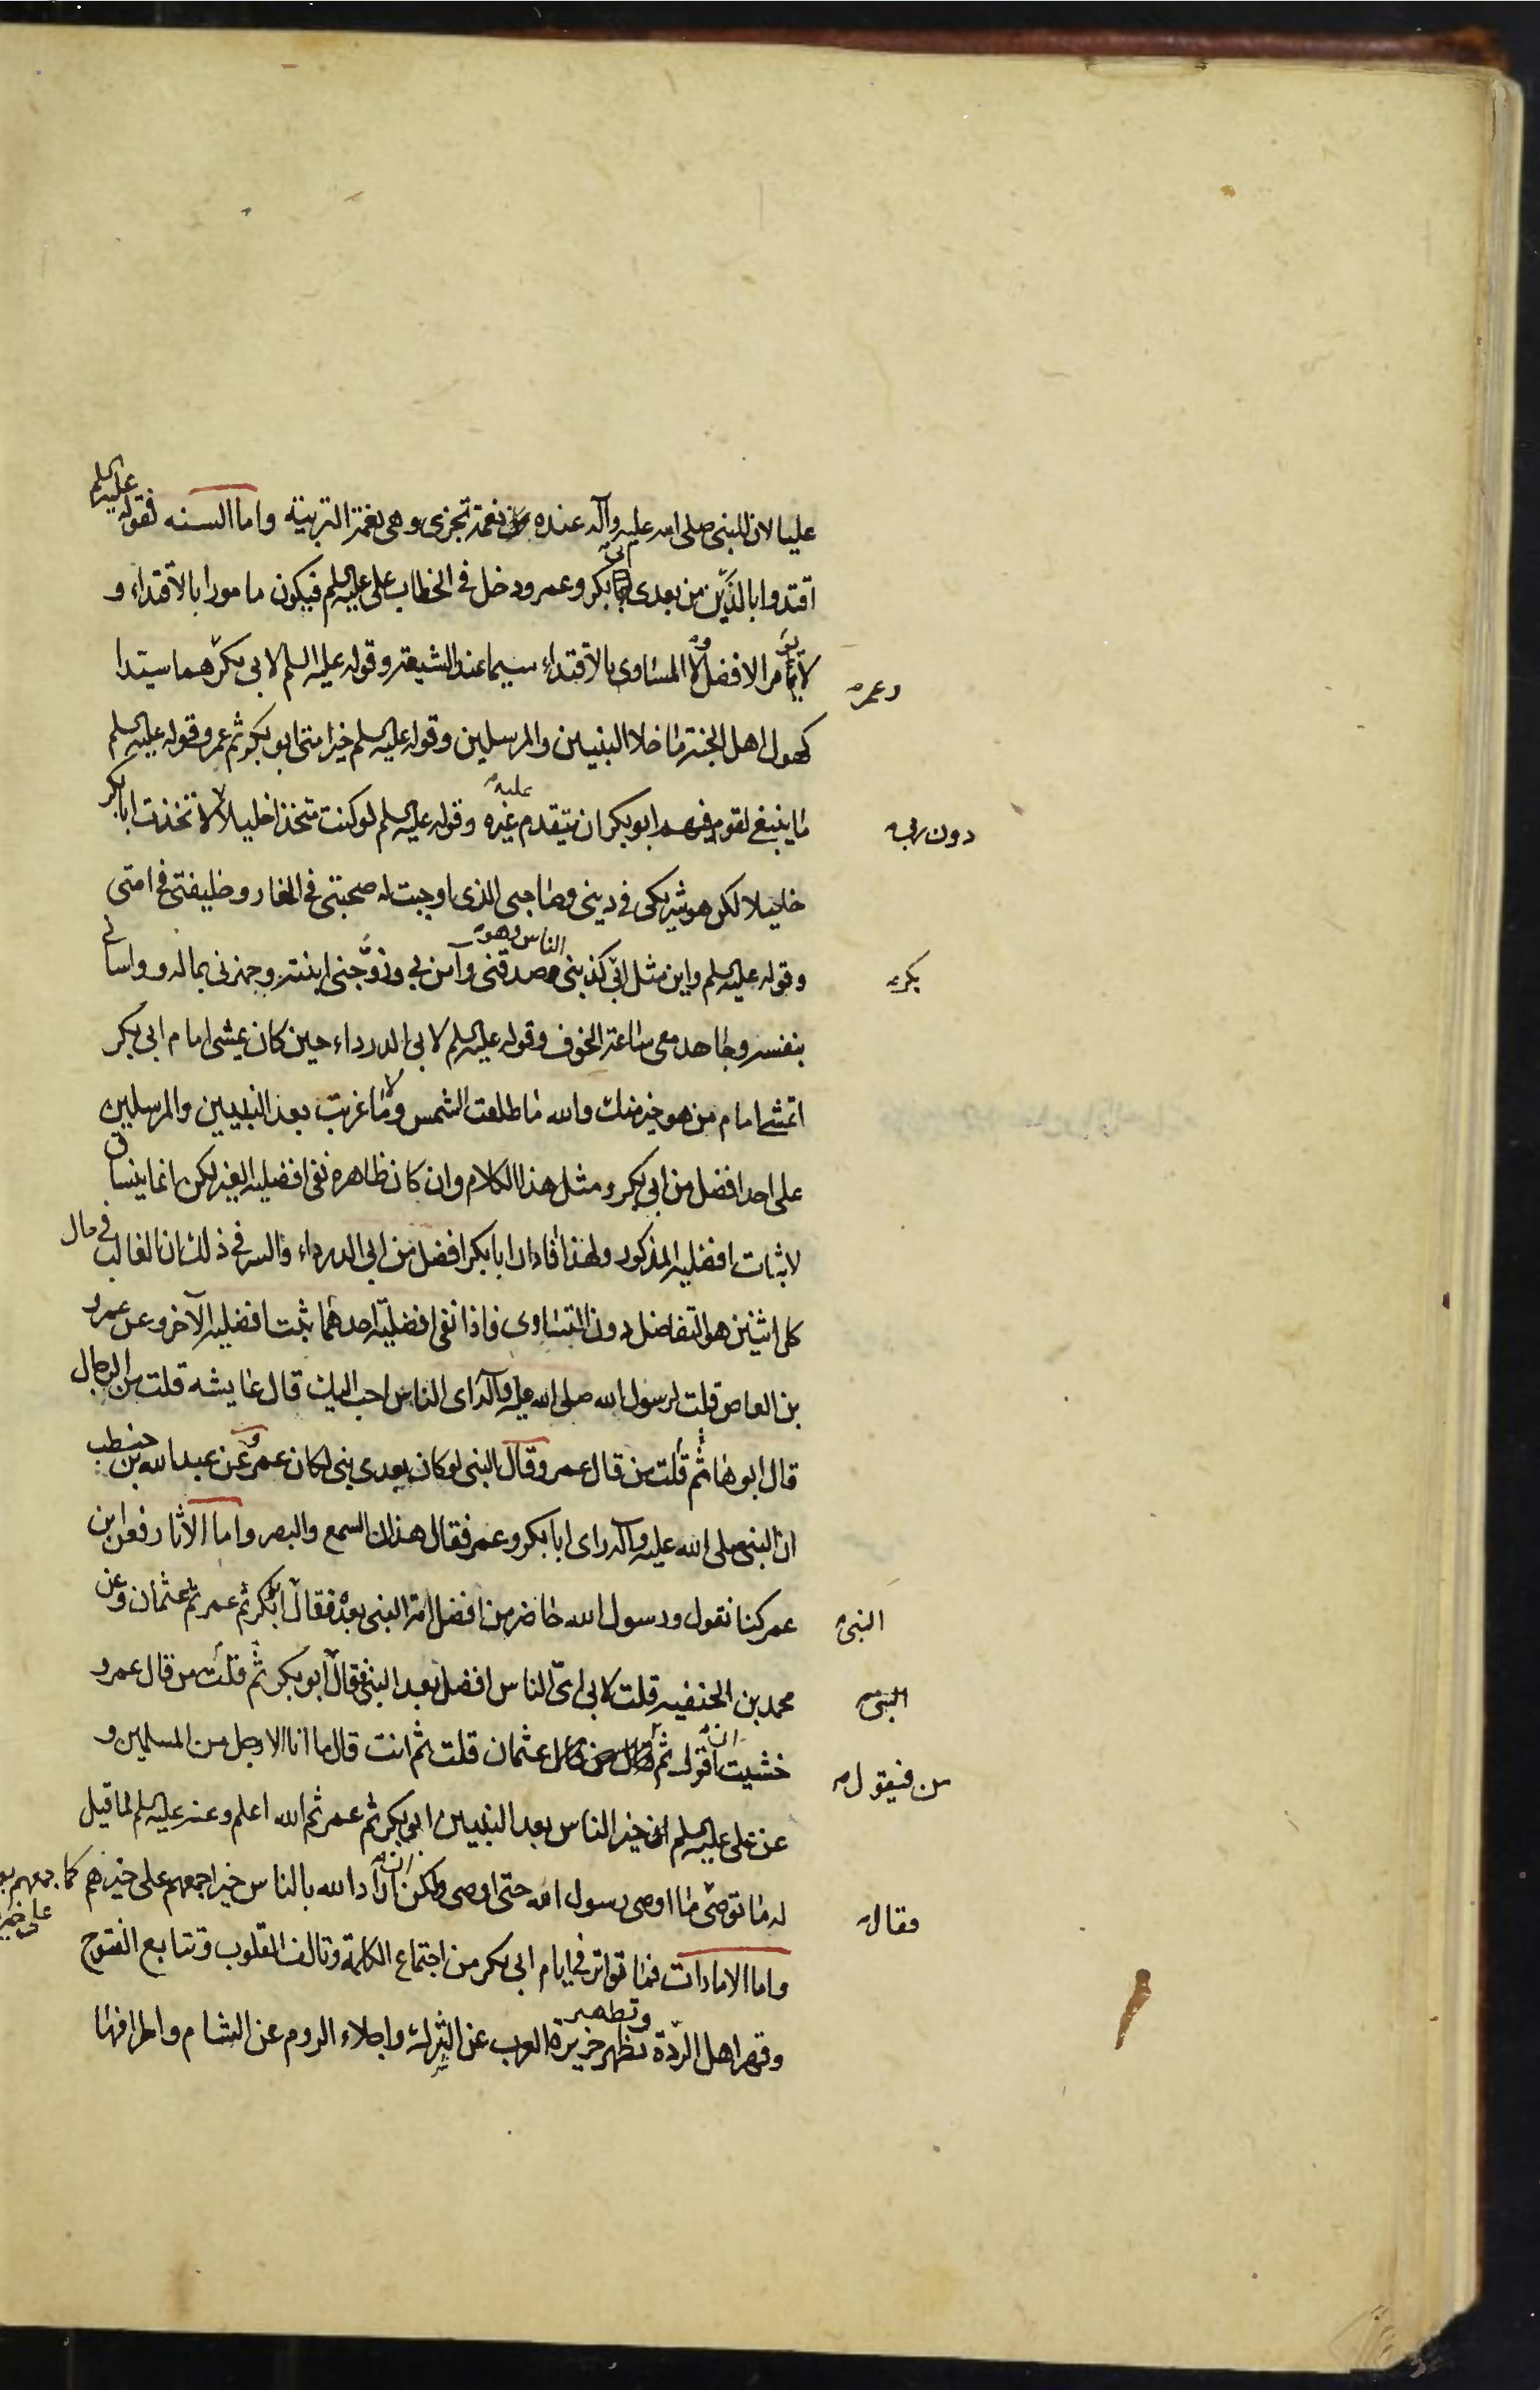 عليا لان للنبي صلى الله عليه وآله عنده نعمة تجزى وهى نعمة التربية واما السنه فقوله عليه السلم
اقتدوا بالذين من بعدى ابى بكر وعمر ودخل فى الخطاب على عليه السلم فيكون مامورا بالاقتداء و
لا يؤمر الافضل ولا المساوى بالاقتداء سيما عند الشيعة وقوله عليه السلم لابى بكر هما سيّدا
وعمر
كهول اهل الجنة ما خلا النبيين والمرسلين وقوله عليه السلم خير امتى ابو بكر ثم عمر وقوله عليه السلم
ما ينبغى لقوم فيهم ابو بكر ان يتقدم عليه غيره وقوله عليه السلم لو كنت متخذا خليلا لاتخذت ابا بكر
دون ربى
خليلا لكن هو شريكى فى دينى وصاحبى الذى اوجبت له صحبتى فى الغار وخليفتى فى امتى
وقوله عليه السلم واين مثل ابى كذبنى الناس وهو صدقنى وآمن بى وزوّجنى ابنته وجهزنى بماله وواسانى
بكر
بنفسه وجاهد معى ساعة الخوف وقوله عليه السلم لابى الدرداء حين كان يمشى امام ابى بكر
اتمشى امام من هو خير منك والله ما طلعت الشمس ولا غربت بعد النبيين والمرسلين
على احد افضل من ابى بكر ومثل هذا الكلام وان كان ظاهره نفى افضليه الغير لكن انما ينساق
لاثبات افضليه المذكور ولهذا افاد ان ابا بكر افضل من ابى الدرداء والسر فى ذلك ان الغالب فى حال
كل اثنين هو التفاضل دون التساوى فاذا نفى افضليّة احدهما ثبت افضليه الآخر وعن عمرو
بن العاص قلت لرسول الله صلى الله عليه وآله اى الناس احب اليك قال عايشه قلت من الرجال
قال ابوها ثم قلت من قال عمر وقال النبى لو كان بعدى نبى لكان عمر وعن عبد الله بن حنطب
ان النبى صلى الله عليه وآله راى ابا بكر وعمر فقال هذان السمع والبصر واما الاثار فعن ابن
عمر كنا نقول ورسول الله حاضر من افضل امة النبى بعده فقال ابو بكر ثم عمر ثم عثمان وعن
النبى
محمد بن الحنفيه قلت لابى اىّ الناس افضل بعد النبى فقال ابو بكر ثم قلت من قال عمر و
النبى
خشيت ان اقول ثم من فيقول عثمان قلت ثم انت قال ما انا الا رجل من المسلمين و
من فيقول
عن على عليه السلم خير الناس بعد النبيين ابى بكر ثم عمر ثم الله اعلم وعنه عليه السلم لما قيل
له ما توصى ما اوصى رسول الله حتى اوصى ولكن ان اراد الله بالناس خيرا جمعهم على خيرهم كما جمعهم بعد
على خير
فقال
واما الامارات فما تواتر فى ايام ابى بكر من اجتماع الكلمة وتالف القلوب وتتابع الفتوح
وقهر اهل الردّة وتطهير جزيرة العرب عن الشرك واجلاء الروم عن الشام واطرافها